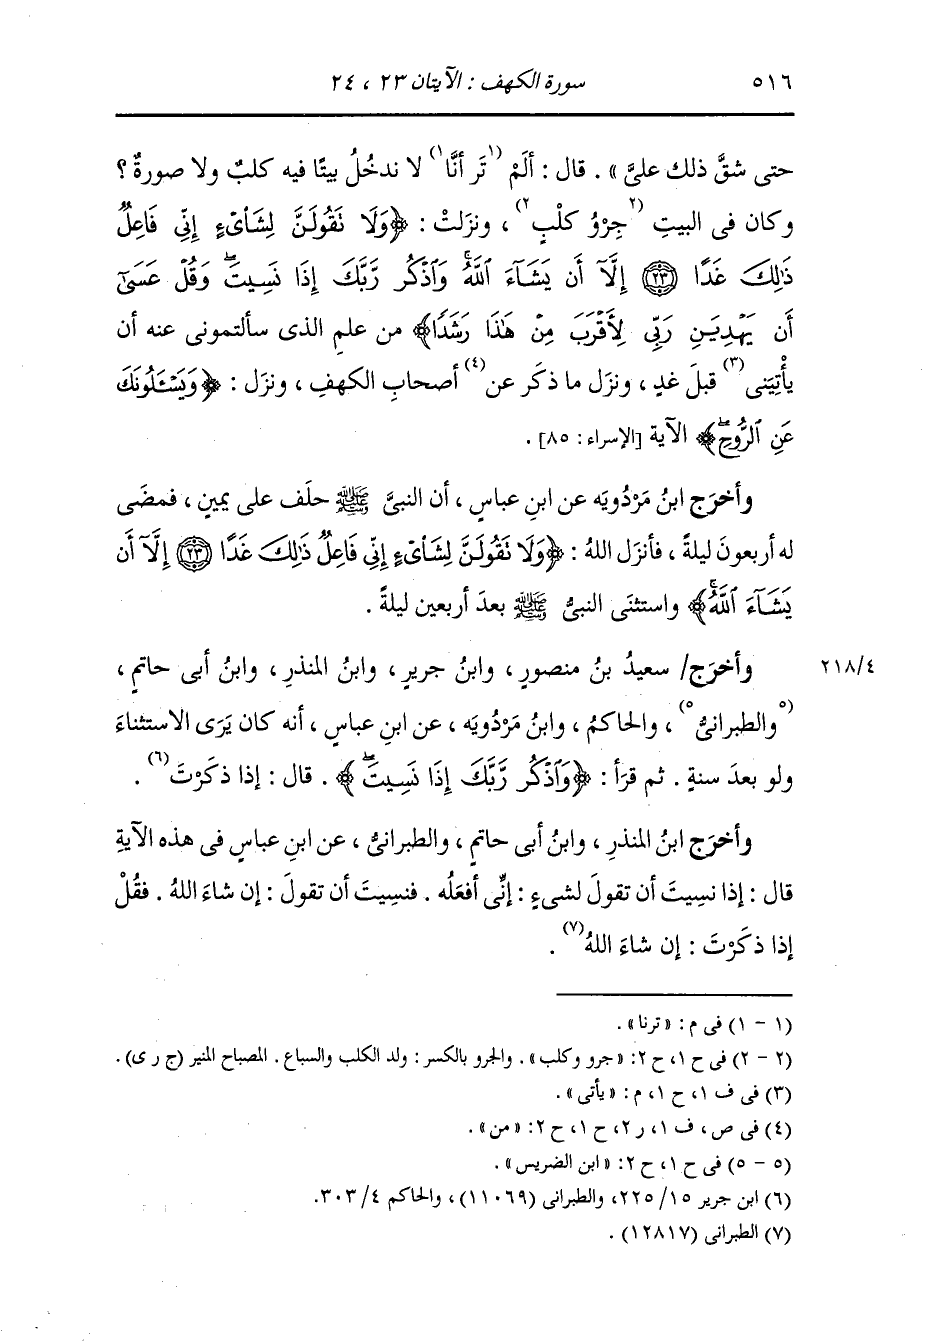 ٥١٦ سورة الكهف : الآيتان ٢٣ ، ٢٤
حتى شقَّ ذلك علىَّ » . قال : ألَمْ (١تَر أنَّا١) لا ندخُلُ بيتًا فيه كلبٌ ولا صورةٌ ؟
وكان فى البيتِ (٢جِرْوُ كلْبٍ٢) ، ونزَلتْ : ﴿وَلَا نَقُولَنَّ لِشَاْىْءٍ إِنِّى فَاعِلٌ
ذَٰلِكَ غَدًا ﴿٢٣﴾ إِلَّآ أَن يَشَآءَ ٱللَّهُ ۚ وَٱذْكُر رَّبَّكَ إِذَا نَسِيتَ ۖ وَقُلْ عَسَىٰٓ
أَن يَهْدِيَنِ رَبِّى لِأَقْرَبَ مِنْ هَٰذَا رَشَدًا﴾ من علمِ الذى سألتمونى عنه أن
يأْتِيَنى(٣) قبلَ غدٍ ، ونزَل ما ذكَر عن(٤) أصحابِ الكهفِ ، ونزَل : ﴿وَيَسْـَٔلُونَكَ
عَنِ ٱلرُّوحِ ۖ﴾ الآية [الإسراء : ٨٥] .
وأخرَج ابنُ مَرْدُويَه عن ابنِ عباسٍ ، أن النبىَّ ﷺ حلَف على يمينٍ ، فمضَى
له أربعونَ ليلةً ، فأنزَل اللهُ : ﴿وَلَا نَقُولَنَّ لِشَاْىْءٍ إِنِّى فَاعِلٌ ذَٰلِكَ غَدًا ﴿٢٣﴾ إِلَّآ أَن
يَشَآءَ ٱللَّهُ ۚ﴾ واستثنَى النبىُّ ﷺ بعدَ أربعين ليلةً .
٢١٨/٤ وأخرَج/ سعيدُ بنُ منصورٍ ، وابنُ جريرٍ ، وابنُ المنذرِ ، وابنُ أبى حاتمٍ ،
(٥والطبرانىُّ٥) ، والحاكمُ ، وابنُ مَرْدُويَه ، عن ابنِ عباسٍ ، أنه كان يَرَى الاستثناءَ
ولو بعدَ سنةٍ . ثم قرَأ : ﴿وَٱذْكُر رَّبَّكَ إِذَا نَسِيتَ ۖ﴾ . قال : إذا ذكَرْتَ(٦) .
وأخرَج ابنُ المنذرِ ، وابنُ أبى حاتمٍ ، والطبرانىُّ ، عن ابنِ عباسٍ فى هذه الآيةِ
قال : إذا نسِيتَ أن تقولَ لشىءٍ : إنِّى أفعَلُه . فنسِيتَ أن تقولَ : إن شاءَ اللهُ . فقُلْ
إذا ذكَرْتَ : إن شاءَ اللهُ(٧) .
(١ - ١) فى م : « ترنا » .
(٢ - ٢) فى ح ١، ح ٢: « جرو وكلب » . والجرو بالكسر : ولد الكلب والسباع . المصباح المنير (ج ر ى) .
(٣) فى ف ١، ح ١، م : « يأتى » .
(٤) فى ص ، ف ١، ر ٢، ح ١، ح ٢: « من » .
(٥ - ٥) فى ح ١، ح ٢: « ابن الضريس » .
(٦) ابن جرير ١٥/ ٢٢٥، والطبرانى (١١٠٦٩) ، والحاكم ٤/ ٣٠٣.
(٧) الطبرانى (١٢٨١٧) .